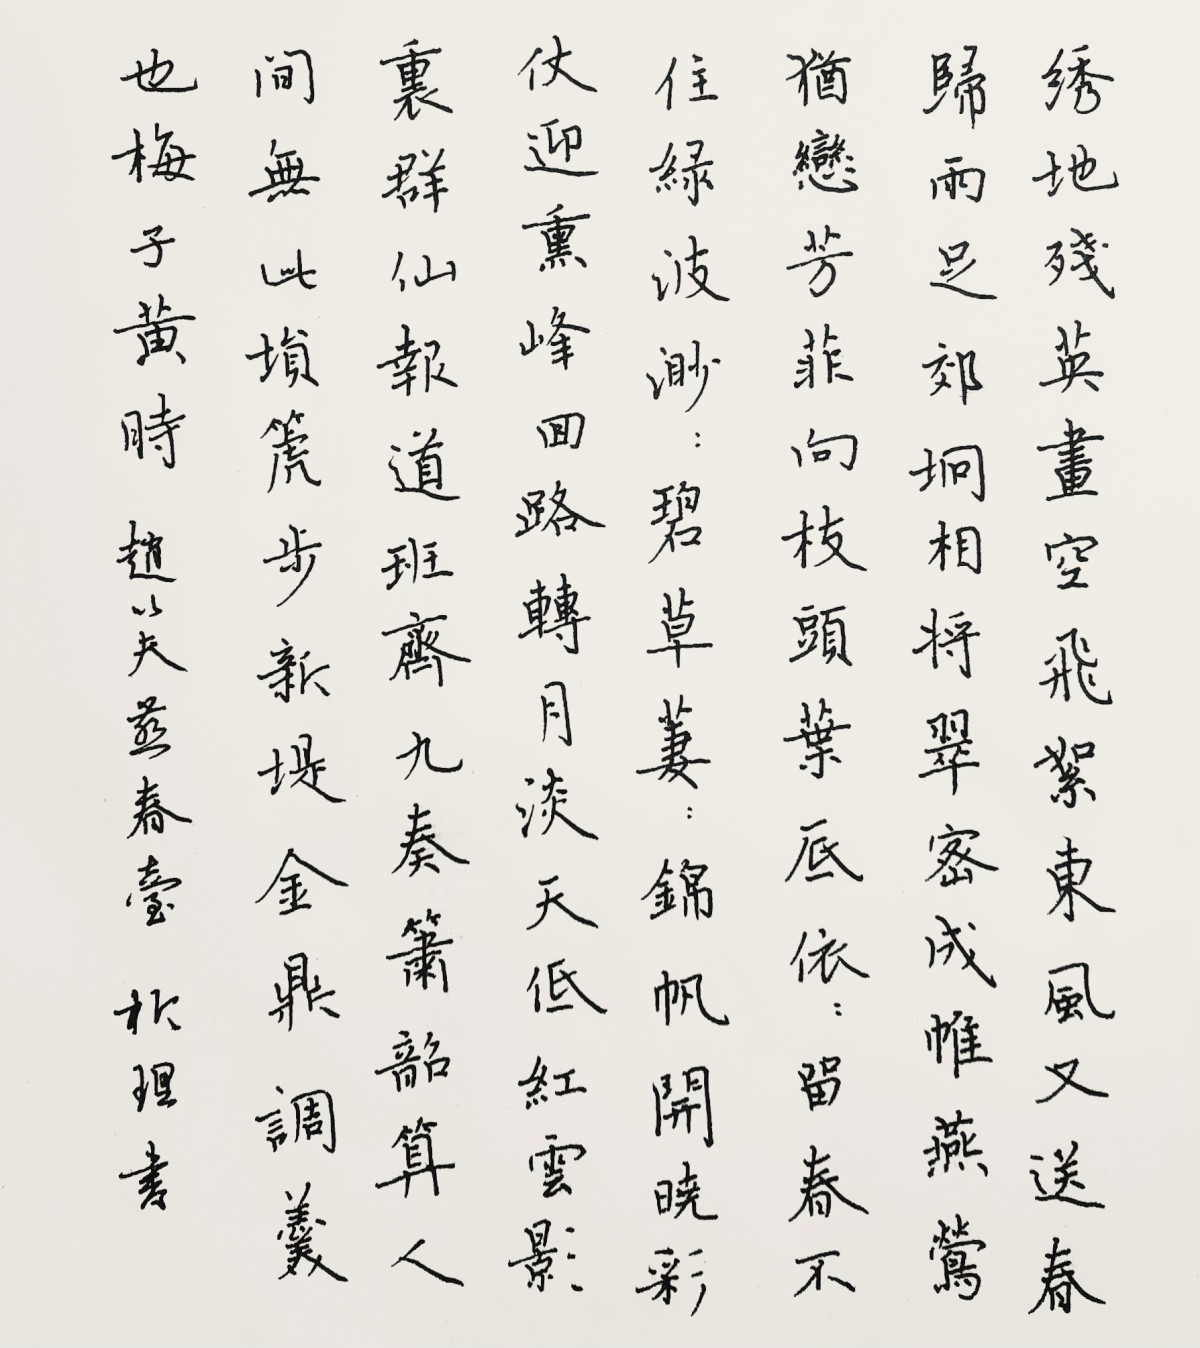 绣地殘英畫空飛絮東風又送春
歸雨足郊坰相将翠密成帷燕鶯
猶戀芳菲向枝頭葉底依：留春不
住緑波渺：碧草萋：錦帆開曉彩
仗迎熏峰回路轉月淡天低紅雲影
裏群仙報道班齊九奏簫韶算人
間無此塤箎步新堤金鼎調羹
也梅子黄時 趙以夫燕春臺 理書